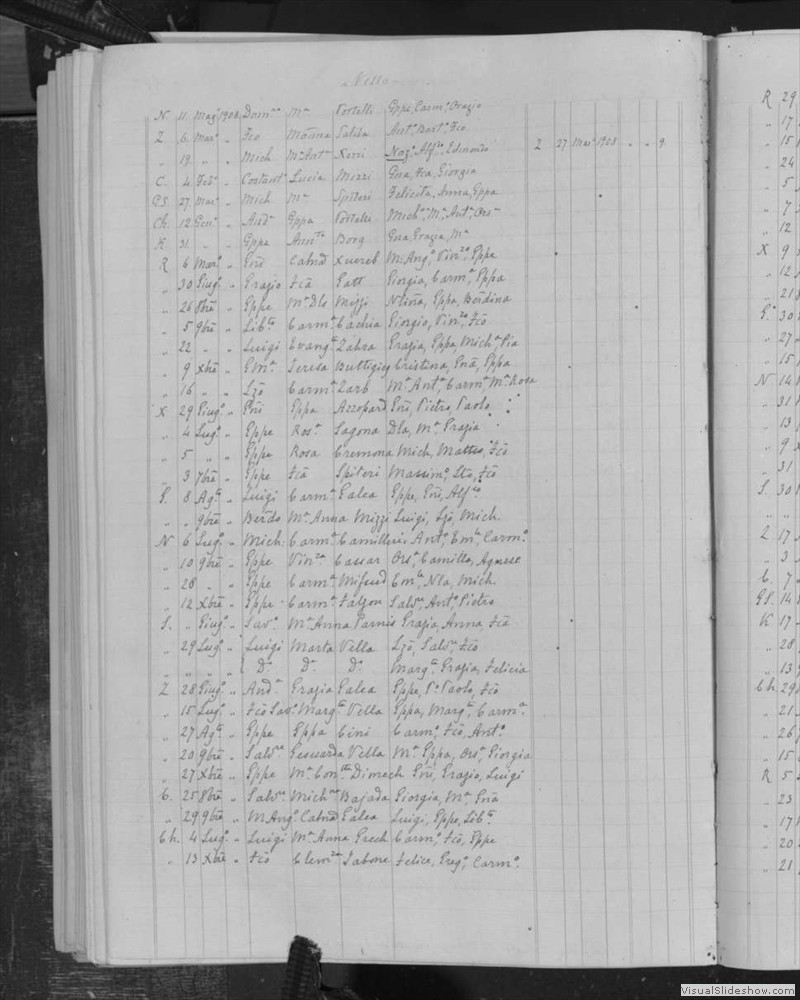 Vella
N 11 Mag° 1908 Dom.co Mª Portelli Gppe, Carmª, Orazio
Z 6 Mar° „ Fco Saliba Antª, Bartª, Fco
„ 19 „ „ Mich Mª Antª Xerri Naz°, Alf.so, Edmondo Z 27 Mar° 1908 „ „ 9
C. 4 Feb° „ Costant° Lucia Mizzi Gna, Fca, Giorgia
GS. 27 Mar° „ Mich Mª Spiteri Felicita, Anna, Gppa
Ch. 12 Gen° „ And° Gppa Portelli Mich, Mª Antª, Orsª
K 31 „ „ Gppe Ann.ta Borg Gna, Grazia, Mª
R 6 Mar° „ Gnī Catnd Xuereb M. Ang°, Vin.zo, Gppe
„ 30 Giug° „ Grazio Fcā Gatt Giorgia, Carmª, Gppa
„ 26 8brē „ Gppe Mª Dls Mizzi Gppa, Berdina
„ 5 9brē „ Lib.to Carmª Cachia Giorgio, Vin.zo, Fcō
„ 22 „ „ Luigi Evang.ta Zahra Grazia, Gppa, Michª Pia
„ 9 Xbrē „ Teresa Buttigieg Cristina, Gnā, Gppa
„ 16 „ „ Lzō Carmª Zarb Mª Antª Carmª Mª Rosa
X 29 Giug° „ Gnī Gppa Azzopard Gnī, Pietro, Paolo
„ 4 Lug° „ Gppe Rosª Lagona Dla, Mª Grazia
„ 5 „ „ Gppe Rosa Cremona Mich, Matteo, Fcō
„ 3 7brē „ Gppe Fcā Spiteri Massim°, Fcō
S. 8 Ag.to „ Luigi Carmª Galea Gppe, Gnī, Alf.so
„ „ 9brē „ Berdo Mª Anna Mizzi Luigi, Lzō, Mich
N 6 Lug° „ Mich Carmª Camilleri Ant°, Carm°
„ 10 9brē „ Gppe Vin.za Cassar Orsª, Camillo, Agnese
„ 28 „ „ Gppe Carmª Mifsud Nla, Mich
„ 12 Xbrē „ Gppe Carmª Falzon Salvª, Ant°, Pietro
S. „ Giug° „ Sav° Mª Anna Parnis Grazia, Anna, Fcā
„ 29 Lug° „ Luigi Marta Vella Lzō, Salvª, Fcō
„ „ „ „ Dª Dª Dª Marg.ta, Grazia, Felicia
Z 28 Giug° „ Andª Grazia Galea Gppe, P° Paolo, Fcō
„ 15 Lug° „ Fcō Sav° Marg.ta Vella Gppa, Marg.ta, Carmª
„ 27 Ag.to „ Gppe Gppa Cini Carm°, Fcō, Ant°
„ 20 9brē „ Salvª Gesuarda Vella Mª Gppa, Orsª, Giorgia
„ 27 Xbrē „ Gppe Mª Con.tta Dimech Gnī, Grazio, Luigi
C. 25 8brē „ Salvª Michna Bajada Giorgia, Mª, Gnā
„ 29 9brē „ M Ang° Catnd Galea Luigi, Gppe, Lib.to
Ch. 4 Lug° „ Luigi Mª Anna Grech Carm°, Fcō, Gppe
„ 13 Xbrē „ Fcō Clem.za Tabone Felice, Greg°, Carm°
R 29
„ 17
„ 15
„ 24
„ 5
„ 7
„ 12
X 9
„ 12
„ 21
G. 30
„ 27
„ 15
N 14
„ 31
„ 13
„ 9
„ 31
S. 30
„ „
Z 17
„ 3
C. 7
GS. 14
K 17
„ 28
„ 13
Ch. 29
„ 21
„ 26
„ 15
R 5
„ 23
„ 17
„ 20
„ 21
VisualSlideshow.com